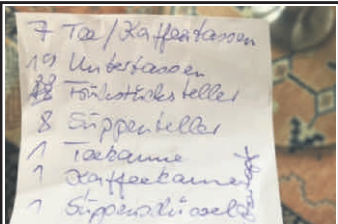 7 Tee/Kaffeetassen
19 Untertassen
Frühstücksteller
8 Suppenteller
1 Teekanne
1 Kaffeekanne
1 Suppenschüssel